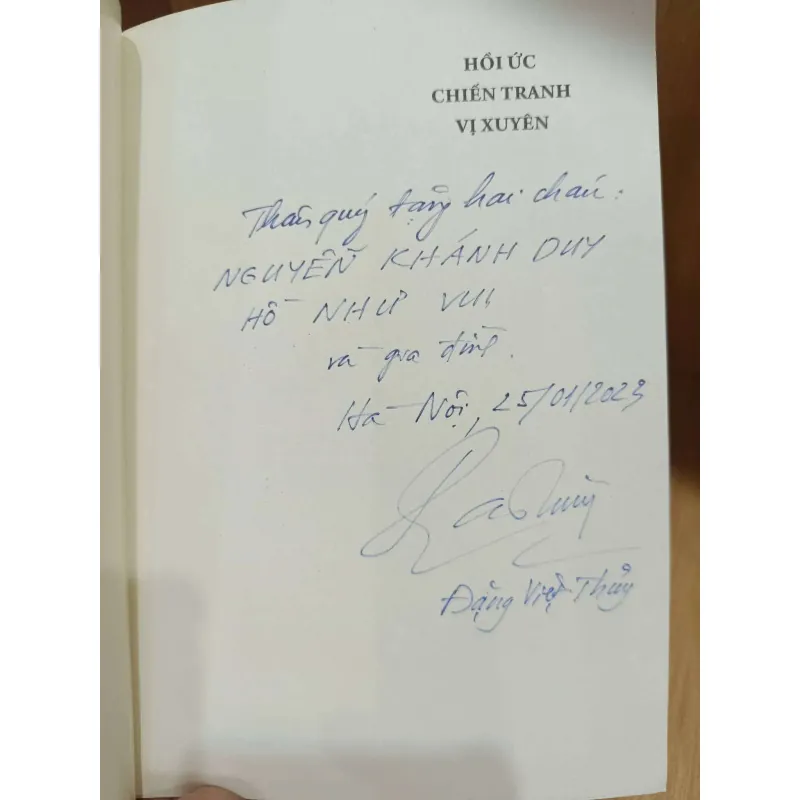 HỒI ỨC
CHIẾN TRANH
VỊ XUYÊN
Thân quý tặng hai cháu:
NGUYỄN KHÁNH DUY
HỒ NHƯ VUI
và gia đình.
Hà Nội, 25/01/2023
Đặng Việt Thủy